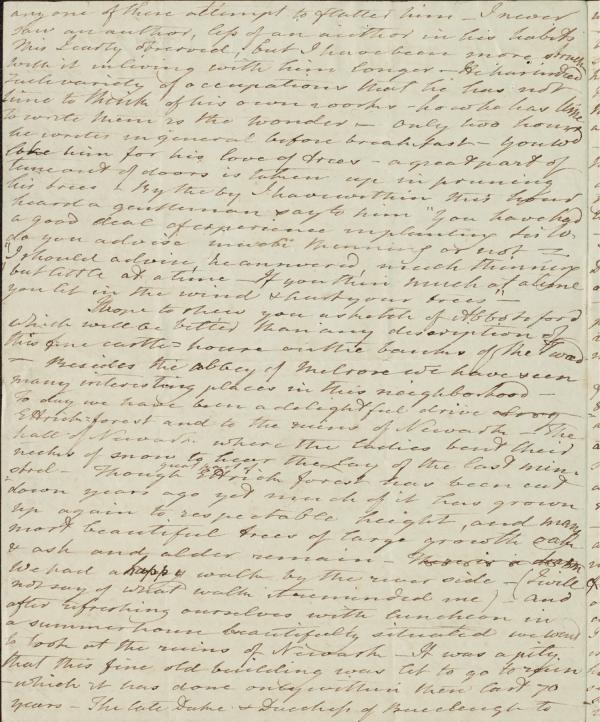 any one of these attempt to flatter him – I never
saw an author, less of an author in his habits
This I early observed, but I have been more struck
with it in living with him longer – He has indeed
such variety of occupations that he has not
time to think of his own works – how he has time
to write them is the wonder – only two hours
he writes in general before breakfast – You wd
like him for his love of trees – a great part of
time out of doors is taken up in pruning
his trees – By the by I have within this hour
heard a gentleman say to him "You have had
a good deal of experience in planting Sir W.
do you advise much thinning or not –
"I should advise, he answered, much thinning
but little at a time – If you thin much at a time
you let in the wind & hurt your trees" –
I hope to shew you a sketch of Abbotsford
which will be better than any description of
this fine castle-house on the banks of the Tweed
– Besides the abbey of Melrose we have seen
many interesting places in this neighborhood –
To day we have been a delightful drive along
Ettrick-forest and to the ruins of Newark – The
hall of Newark where the ladies bent their
necks of snow to hear the Lay of the last min-
strel – Though great part of Ettrick forest has been cut
down years ago yet much of it has grown
up again to respectable height, and many
most beautiful trees of large growth oak
& ash and alder remain –
We had a happy walk by the river side – (I will
not say of what walk it reminded me) and
after refreshing ourselves with luncheon in
a summerhouse beautifully situated we went
to look at the ruins of Newark – It was a pity
that this fine old building was let to go to ruin
– which it has done only within these last 70
years – The late Duke & Duchess of Buccleugh to